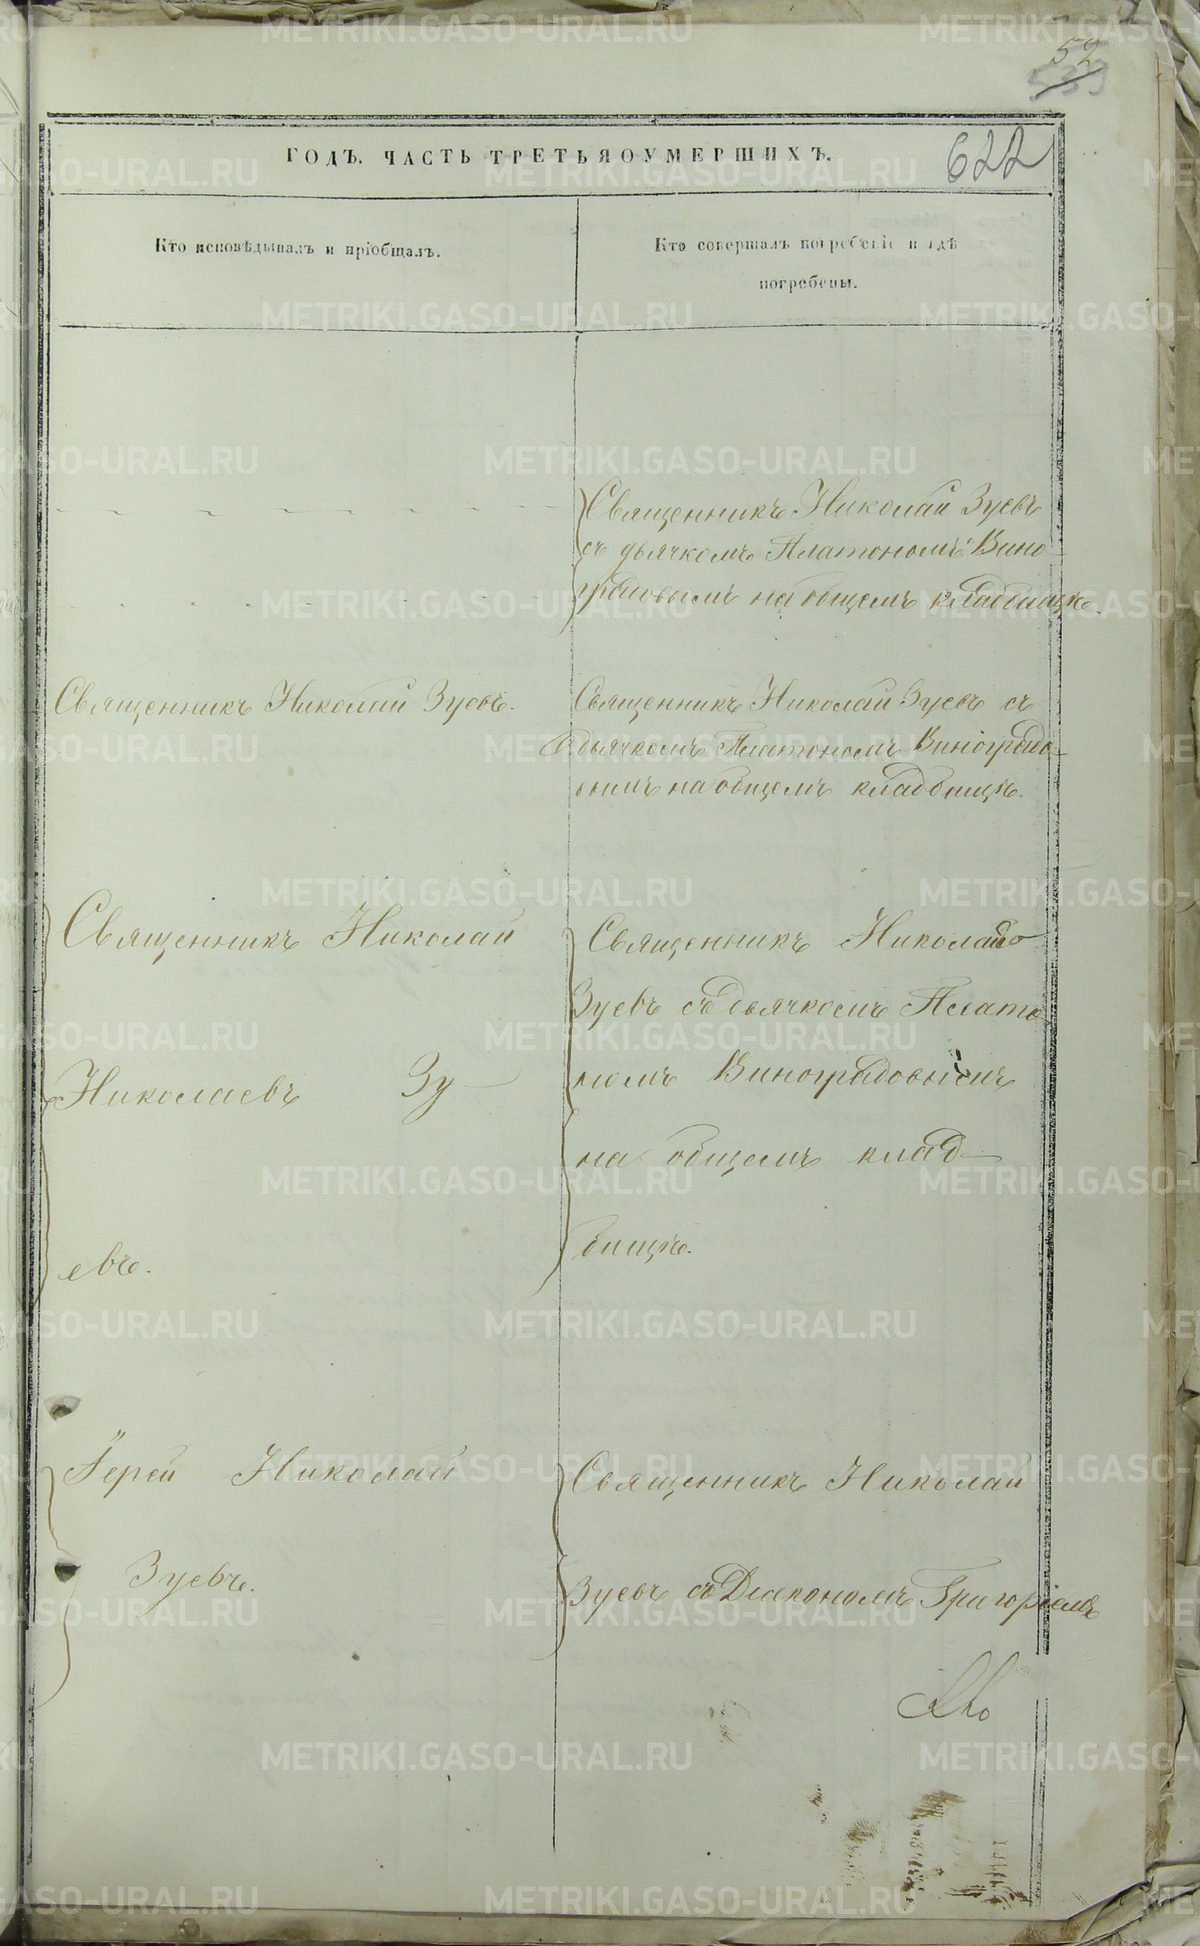 52
533
622
ГОДЪ. ЧАСТЬ ТРЕТЬЯ О УМЕРШИХЪ.
Кто исповѣдывалъ и пріобщалъ.
Кто совершалъ погребеніе и гдѣ
погребены.
Священникъ Николай Зуевъ
съ дьячкомъ Платономъ Вино-
градовымъ на общемъ кладбищѣ.
Священникъ Николай Зуевъ.
Священникъ Николай Зуевъ съ
дьячкомъ Платономъ Виноградо-
вымъ на общемъ кладбищѣ.
Священникъ Николай
Николаевъ Зу-
евъ.
Священникъ Николай
Зуевъ съ дьячкомъ Плато-
номъ Виноградовымъ
на общемъ клад-
бищѣ.
Іерей Николай
Зуевъ.
Священникъ Николай
Зуевъ съ Діакономъ Григоріемъ
METRIKI.GASO-URAL.RU